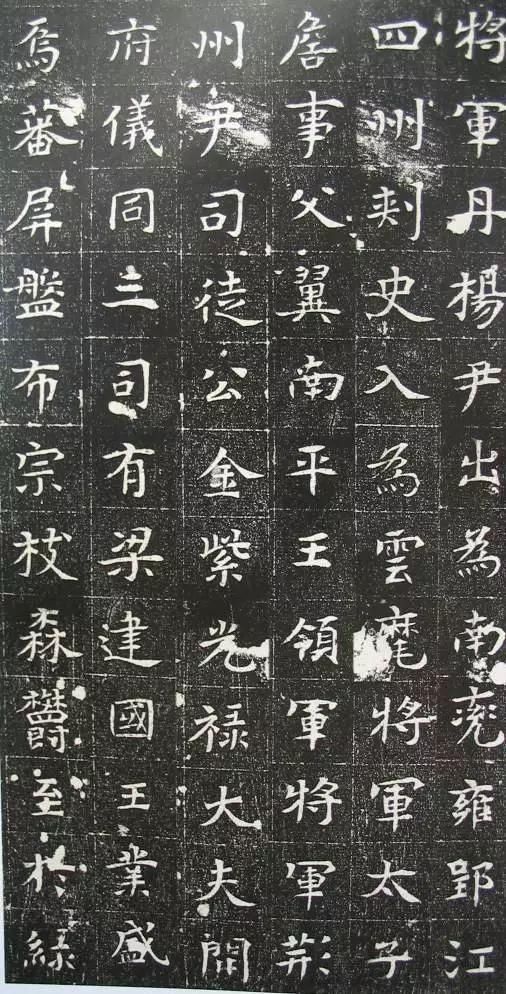 將軍丹楊尹出為南兗雍郢江
四州刾史入為雲麾將軍太子
詹事父翼南平王領軍將軍荊
州尹司徒公金紫光祿大夫開
府儀同三司有梁建國王業盛
焉蕃屏盤布宗枝森欝至於綠